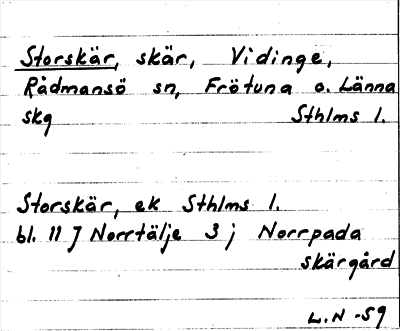 Storskär, skär, Vidinge,
Rådmansö sn, Frötuna o. Länna
skg Sthlms l.
Storskär, ek Sthlms l.
bl. 11 J Norrtälje 3 j Norrpada
skärgård
L.N -59